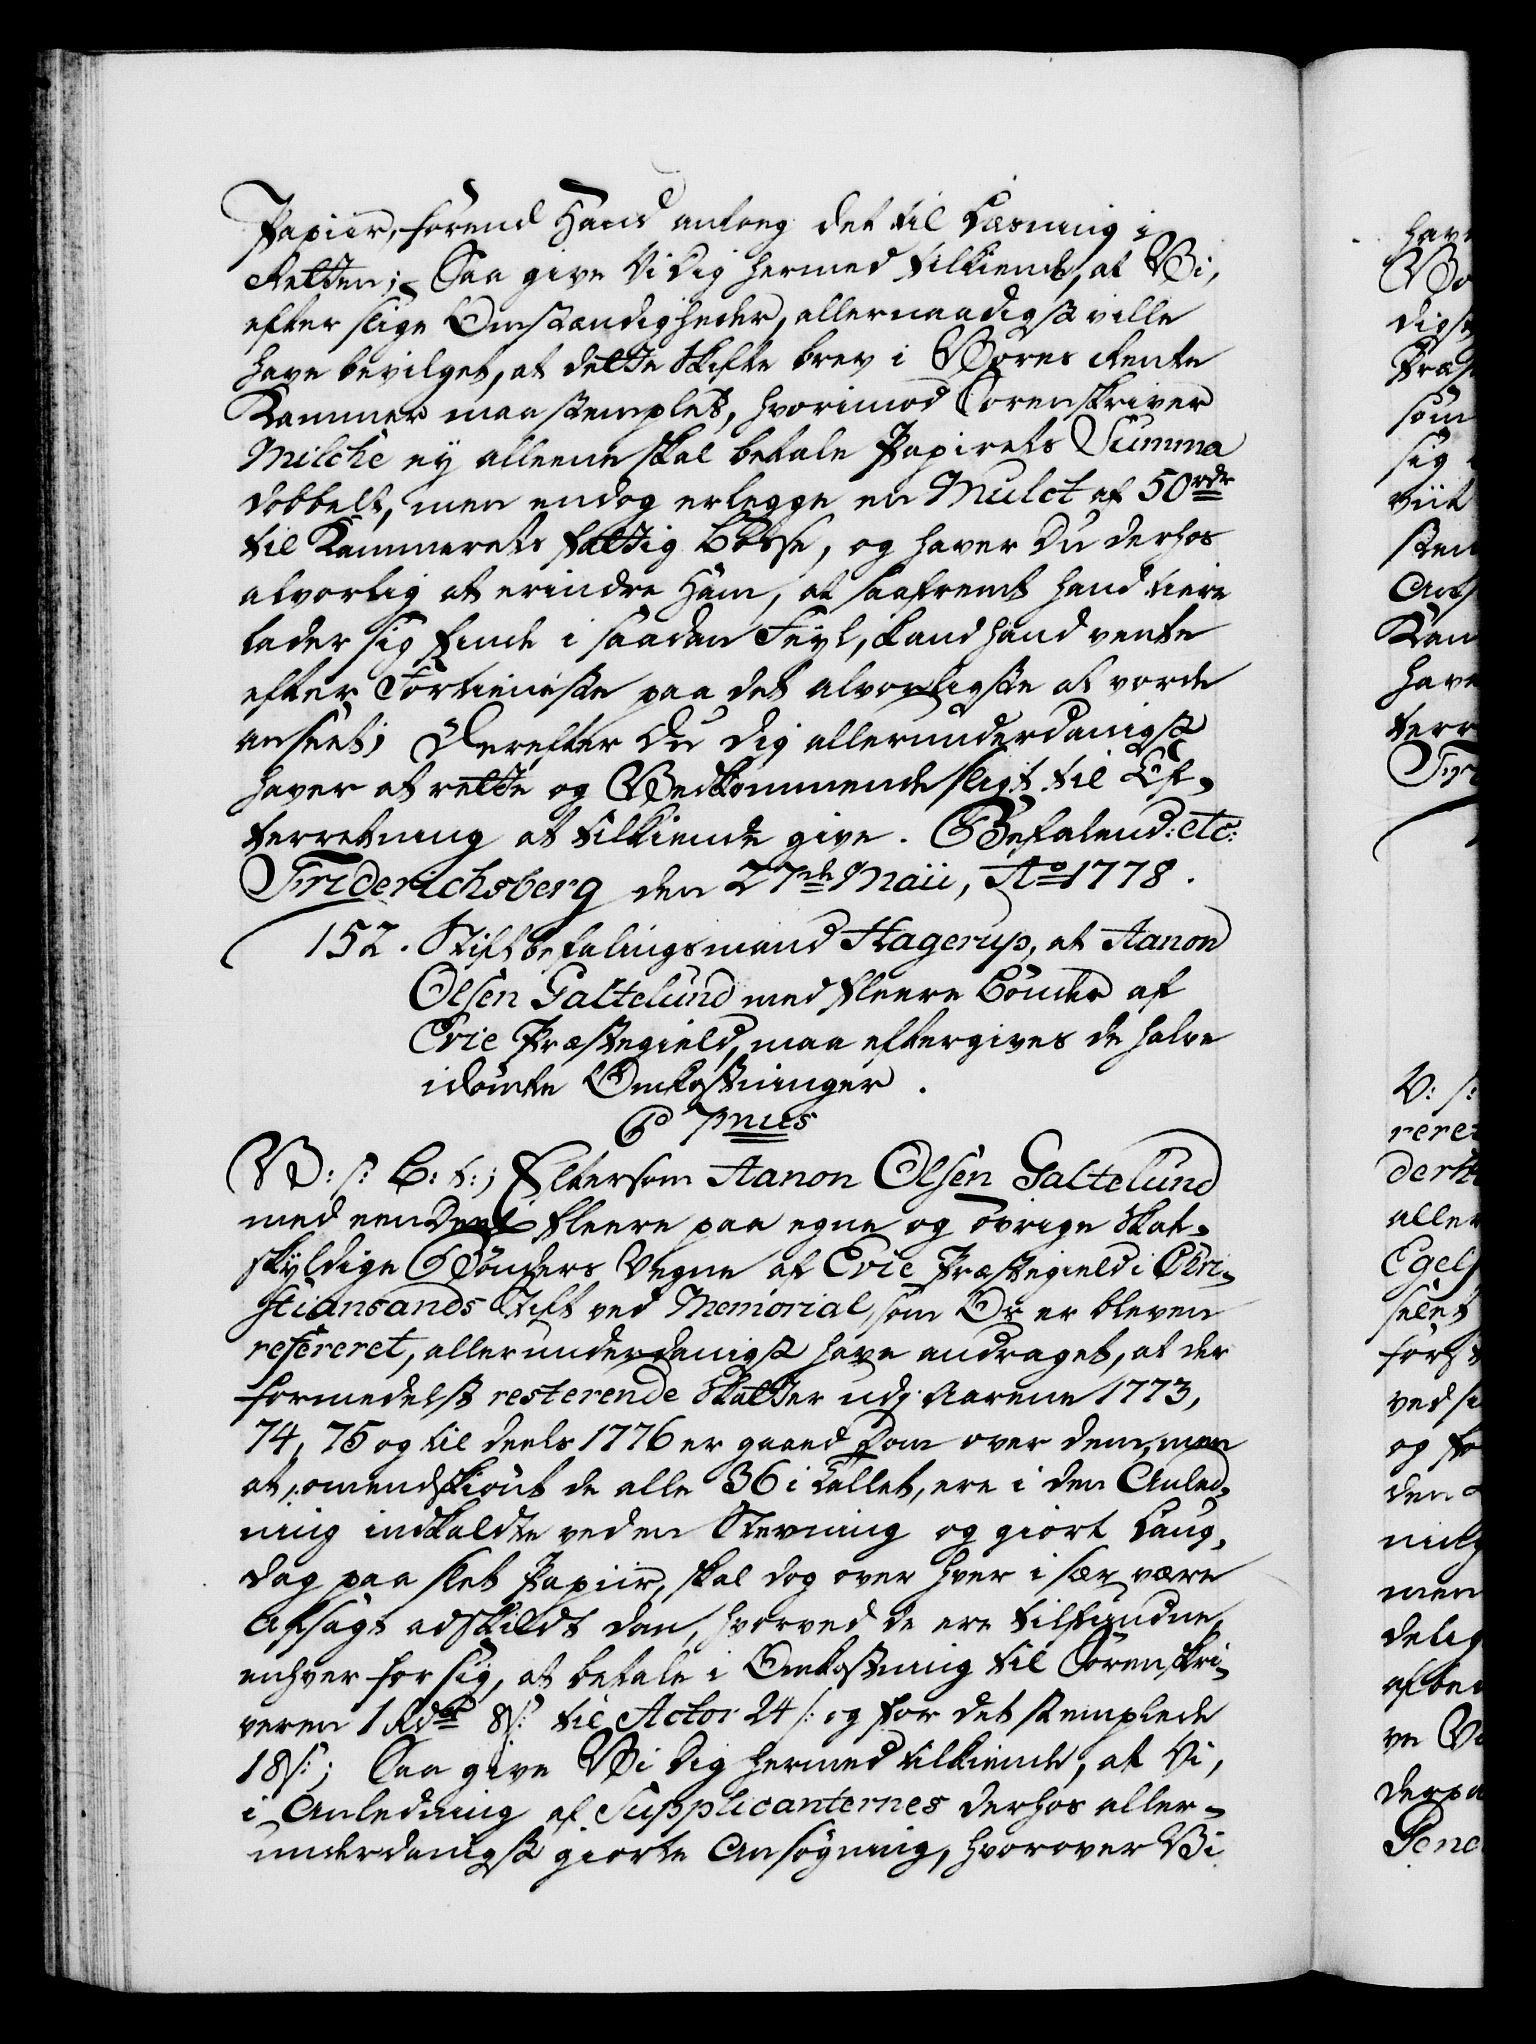 Papiir, førend Hand antog det til Læsning i
Retten; Saa give Vi Dig hermed tilkiende, at Vi,
efter slige Omstændigheder, allernaadigst ville
have bevilget, at dette Skifte brev i Vores Rente
Kammer maa stemples, hvorimod Sorenskriver
Milche ey alleene skal betale Papirets Summa
dobbelt, men endog erlegge en Mulct af 50 rdr
til Kammerets fattig Bøsse, og haver Du derhos
alvorlig at erindre Ham, at saafremt hand tiere
lader sig finde i saadan Feyl, kand hand vente
efter Fortieniste paa det alvorligste at vorde
anseet; Derefter Du Dig allerunderdanigst
haver at rette og Vedkommende sligt til Ef-
terretning at tilkiende give. Befalend: etc:
Friderichsberg den 27de Maii, Ao 1778.
152. Stiftbefalingsmand Hagerup, at Aanon
Olsen Galtelund med fleere Bønder af
Evie Præstegield, maa eftergives de halve
idømte Omkostninger.
C 7nus
V: s: B: t:; Eftersom Aanon Olsen Galtelund
med een Deel fleere paa egne og øvrige Skat-
skyldige Bønders Vegne af Evie Præstegield i Chri-
stiansands Stift ved Memorial, som Os er bleven
refereret, allerunderdanigst have andraget, at der
formedelst resterende Skatter udj Aarene 1773,
74, 75 og til deels 1776 er gaaed Dom over dem, men
at, omendskiønt de alle 36 i Tallet, ere i den Anled-
ning indkaldte ved en Stevning og giort Laug-
dag paa slet Papiir, skal dog over hver i sær være
afsagt adskildt Dom, hvorved de ere tilfundne,
enhver for sig, at betale i Omkostning til Sorenskri-
veren 1 Rdr 8 s: til Actor 24 s: og for det stemplede
18 s:; Saa give Vi Dig hermed tilkiende, at Vi,
i Anledning af Supplicanternes derhos aller-
underdanigst giorte Ansøgning, hvorover Vi